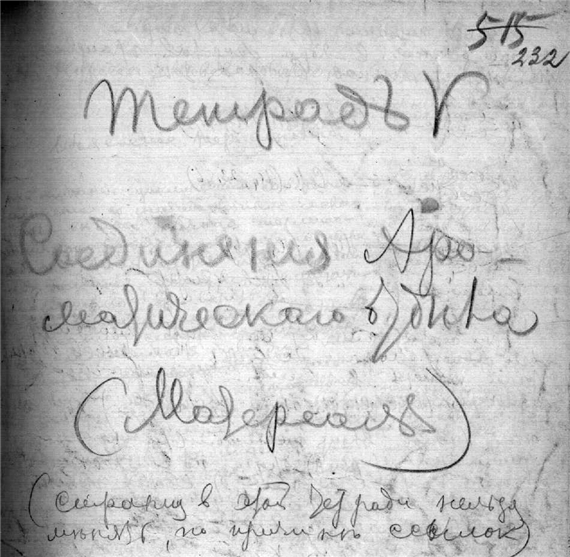 515
232
Тетрадь V
Соединения Аро-
матическаго ряда
(Матерiалъ)
(страниц в этой тетради нельзя
мѣнять, по причинѣ ссылок)